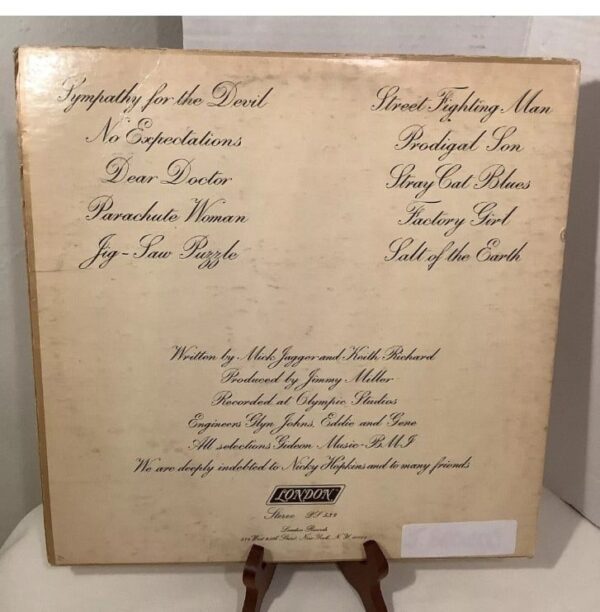 Sympathy for the Devil
No Expectations
Dear Doctor
Parachute Woman
Jig-Saw Puzzle
Street Fighting Man
Prodigal Son
Stray Cat Blues
Factory Girl
Salt of the Earth
Written by Mick Jagger and Keith Richard
Produced by Jimmy Miller
Recorded at Olympic Studios
Engineers Glyn Johns, Eddie and Gene
All selections Gideon Music-B.M.I.
We are deeply indebted to Nicky Hopkins and to many friends
LONDON
Stereo PS 539
London Records
New York, N.Y.